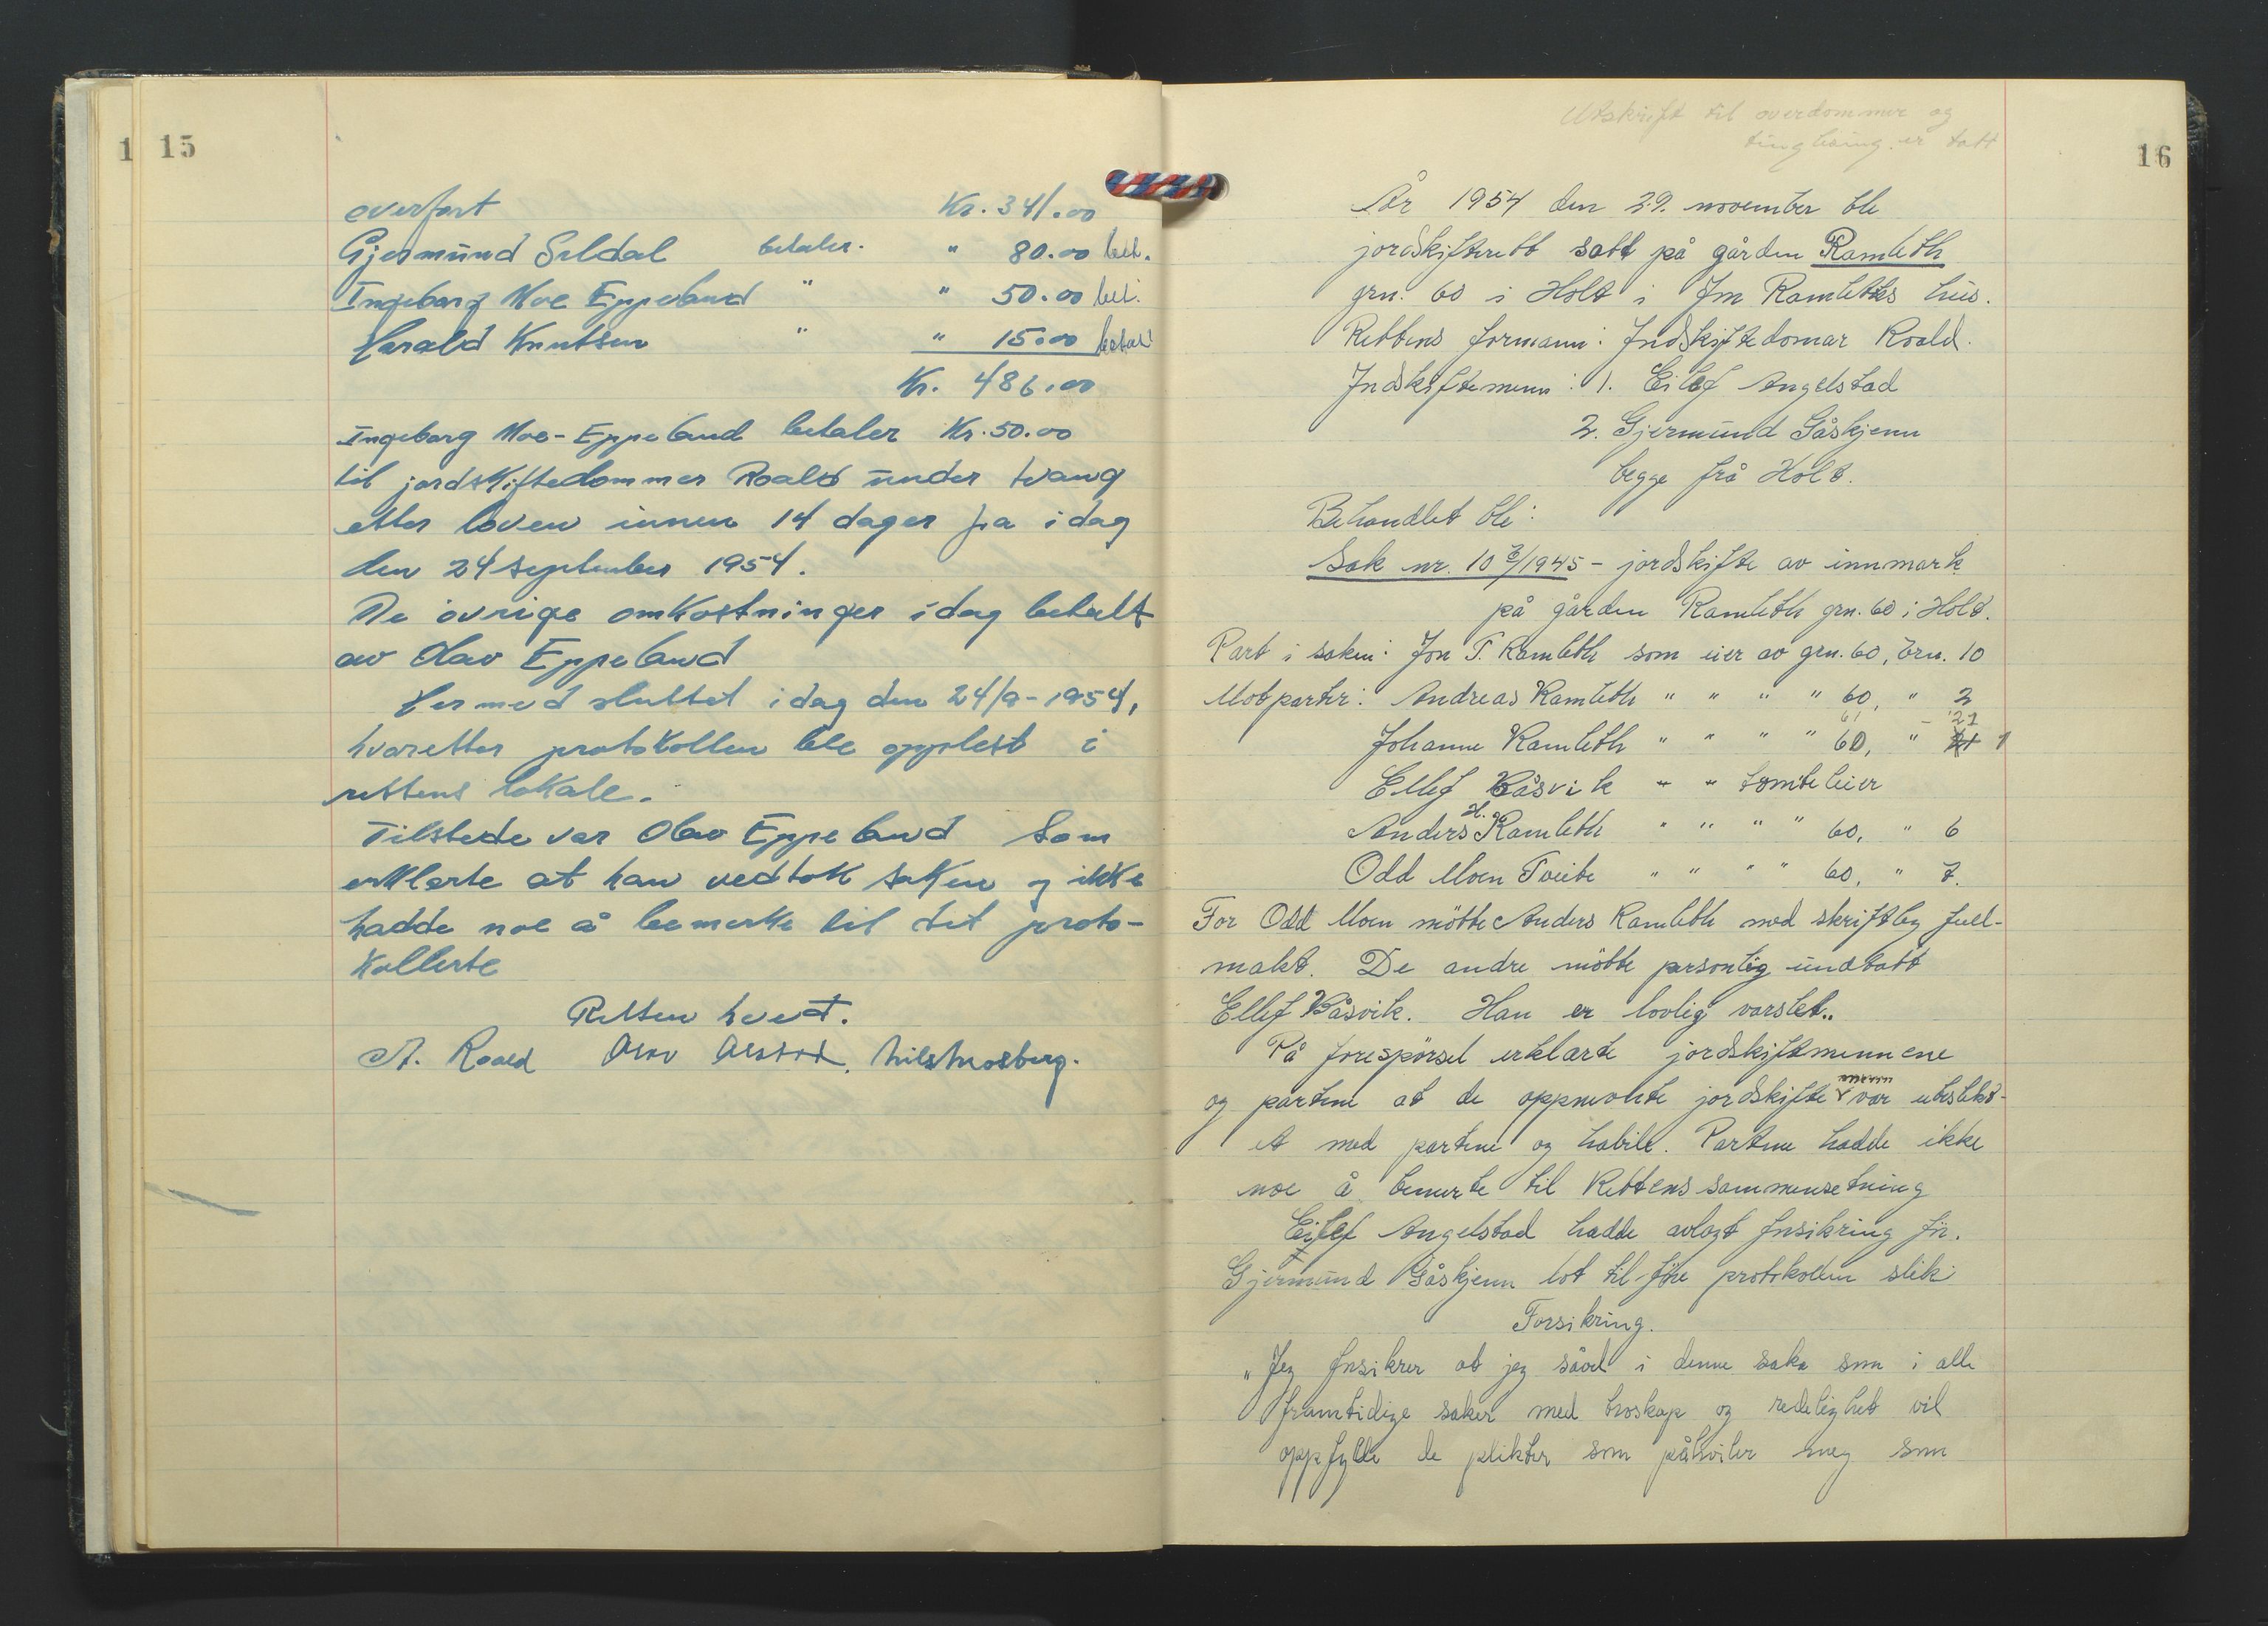 15
overført Kr. 341.00
Gjermund Seldal betaler. " 80.00 bet.
Ingeborg Moe Eppeland " " 50.00 bet.
Harald Knutsen " " 15.00 betal
Kr. 486.00
Ingeborg Moe-Eppeland betaler Kr. 50.00
til jordskiftedommer Roald under tvang
etter loven innen 14 dager fra idag
den 24 september 1954.
De øvrige omkostninger idag betalt
av Olav Eppeland
Hermed sluttet idag den 24/9-1954,
hvoretter protokollen ble opplest i
rettens lokale.
Tilstede var Olav Eppeland som
erklerte at han vedtok saken og ikke
hadde noe å bemerke til det proto-
kollerte
Retten hevet.
A. Roald Nils Mosberg.
16
Utskrift til overdommer og
tinglysing er tatt
År 1954 den 29. november ble
jordskifterett satt på gården Ramleth
grn. 60 i Holt i Jon Ramleths hus.
Rettens formann: Jordskiftedomar Roald.
Jordskiftemenn: 1. Eilef Angelstad
2. Gjermund Gåskjenn
begge frå Holt.
Behandlet ble:
Sak nr. 10 /1945 - jordskifte av innmark
på gården Ramleth grn. 60 i Holt.
Part i saken: Jon T. Ramleth som eier av grn. 60, brn. 10
Motparter: Andreas Ramleth " " " " 60, " 2
61 - 21
Johanne Ramleth " " " " 60, " 21 1
Ellef Båsvik " " tomteleier
Anders H. Ramleth " " " " 60, " 6
Odd Moen Tveite " " " " 60, " 7.
For Odd Moen møtte Anders Ramleth med skriftleg full-
makt. De andre møtte personlig undtatt
Ellef Båsvik. Han er lovlig varslet.
På forespørsel erklærte jordskiftemennene
og partene at de oppnevnte jordskiftemenn var ubeslekt-
et med partene og habile. Partene hadde ikke
noe å bemerke til Rettens sammensetning
Eilef Angelstad hadde avlagt forsikring før.
Gjermund Gåskjenn lot tilføre protokollen slik
Forsikring.
"Jeg forsikrer at jeg såvel i denne sak som i alle
framtidige saker med troskap og redelighet vil
oppfylle de plikter som påhviler meg som